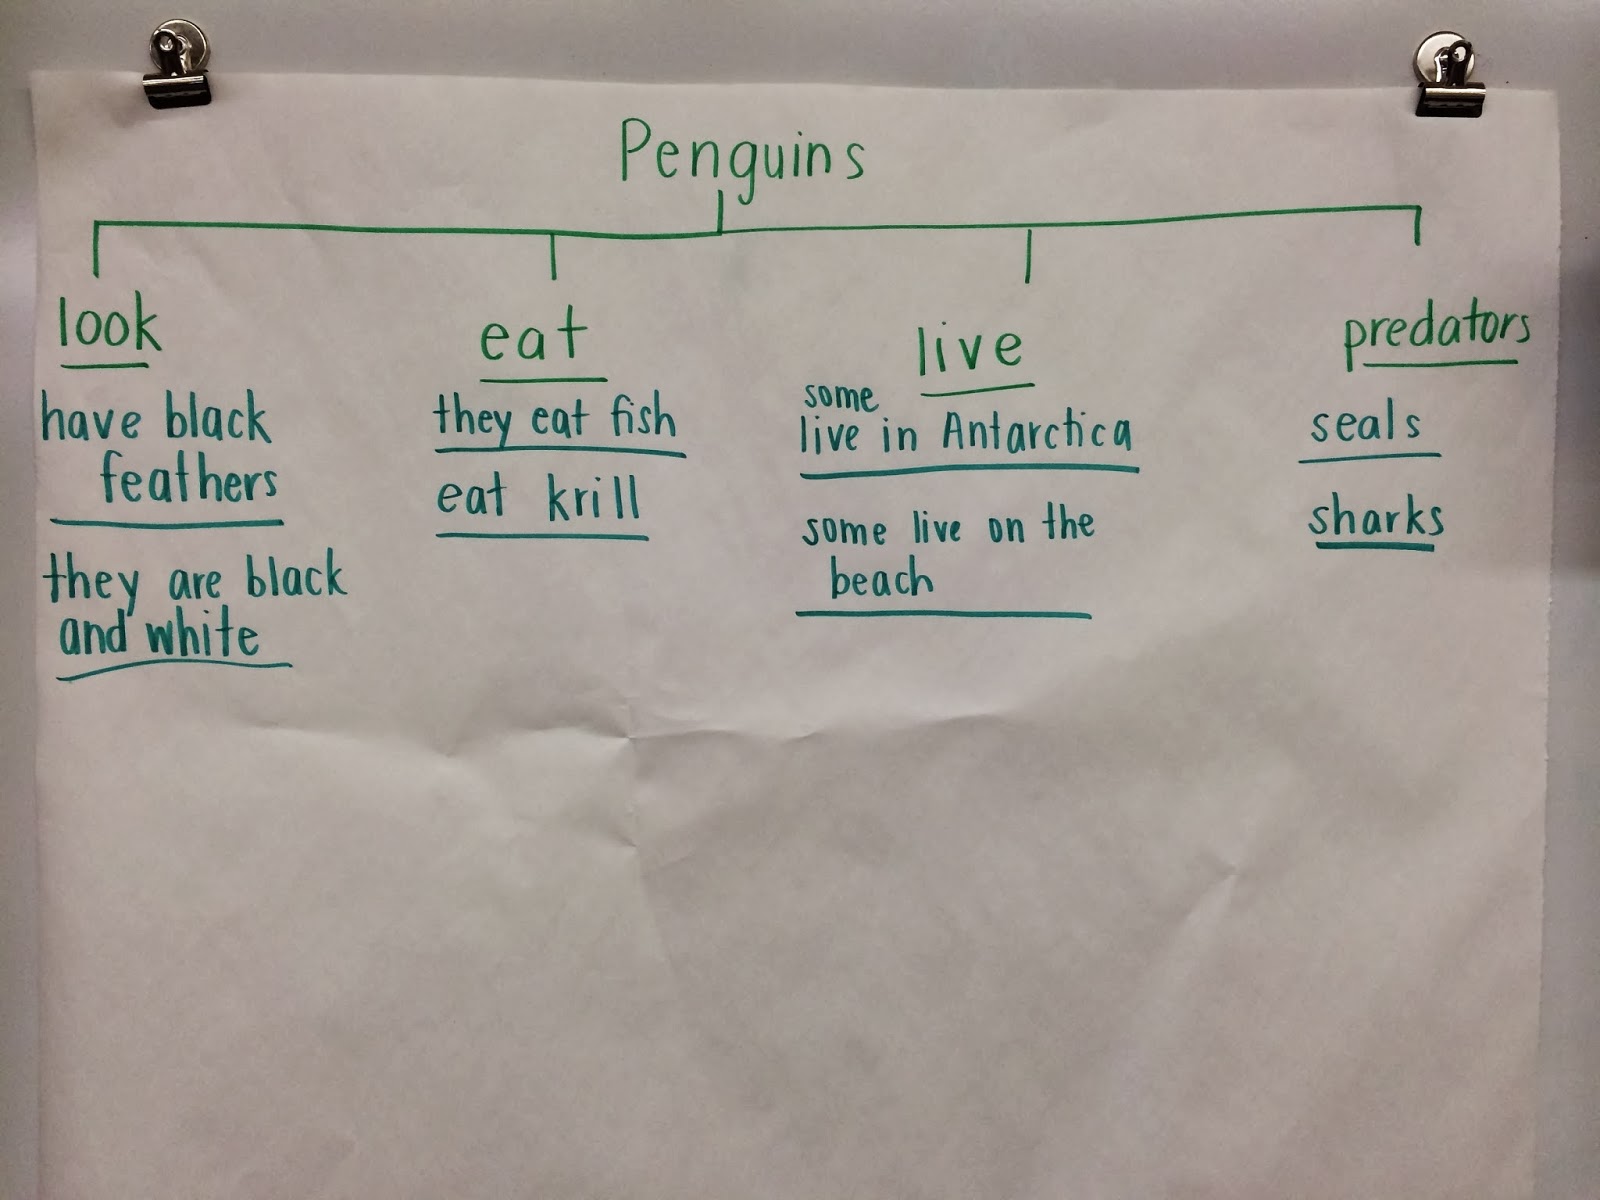 Penguins
look
have black
feathers
they are black
and white
eat
they eat fish
eat krill
live
some
live in Antarctica
some live on the
beach
predators
seals
sharks